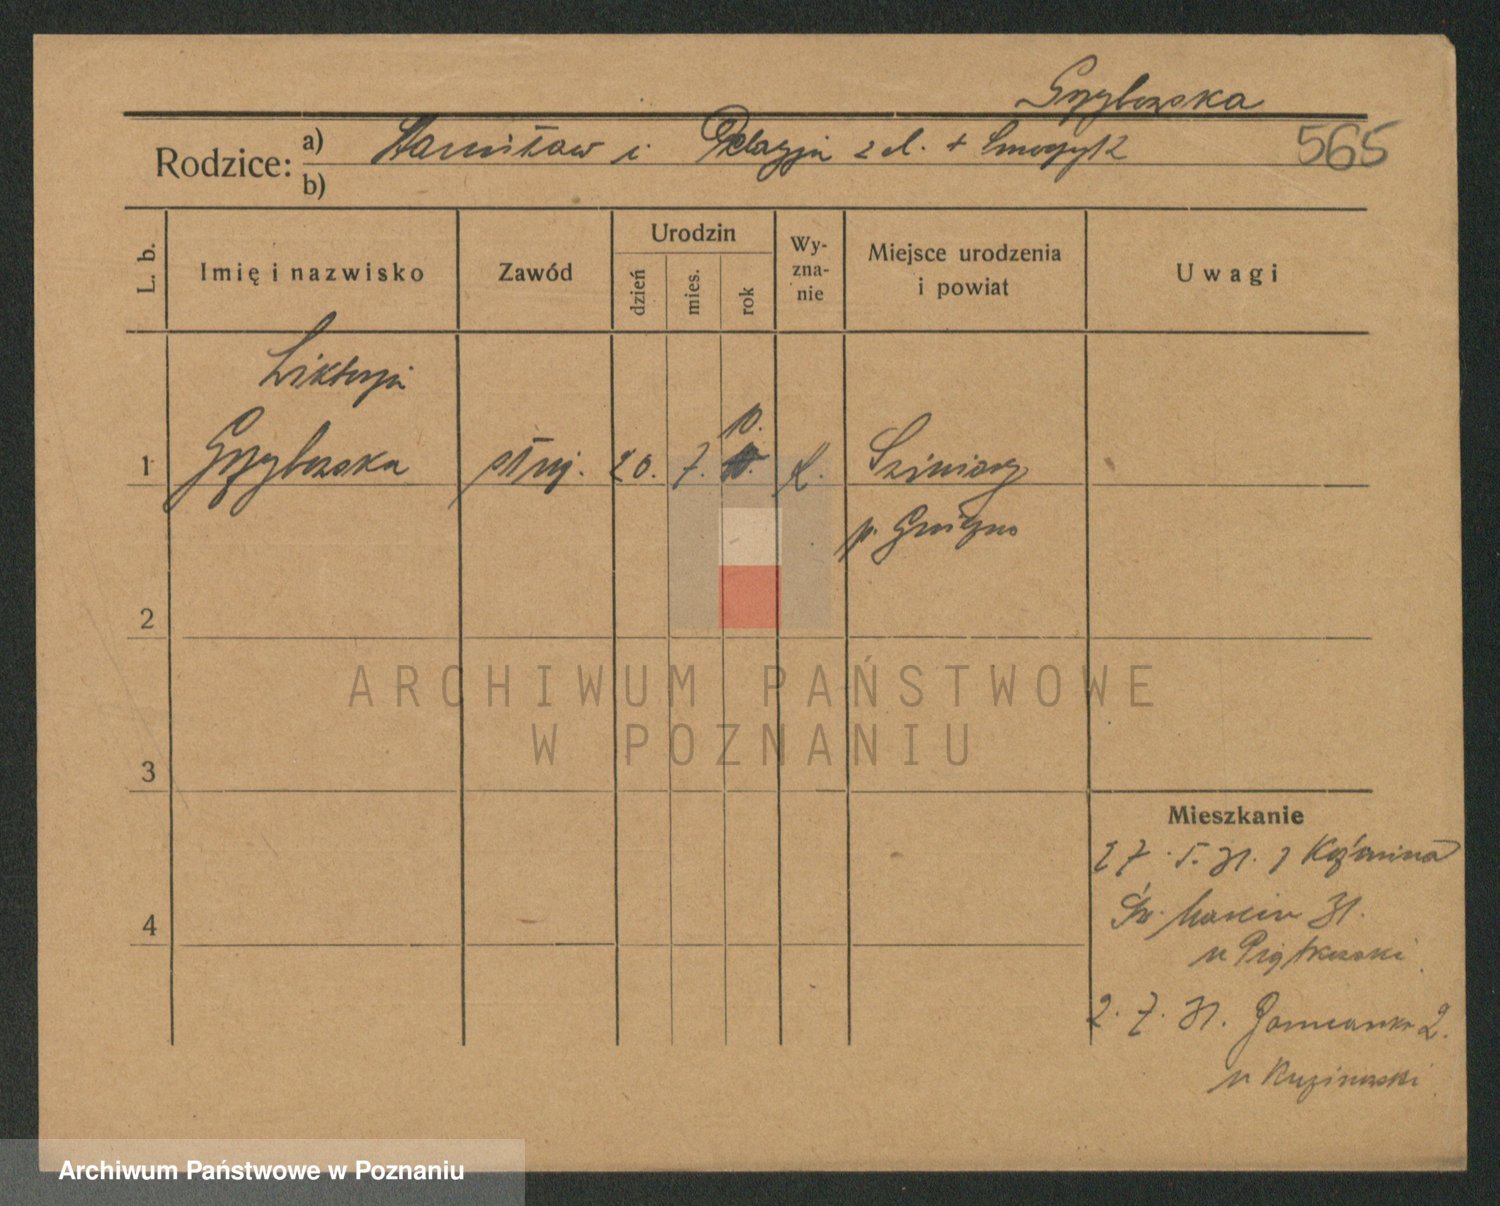 Grzybowska
565
Rodzice:
a) Stanisław i Pelagja z d. + Smoczyk
b)
L. b.
Imię i nazwisko
Zawód
Urodzin
dzień
mies.
rok
Wy-
zna-
nie
Miejsce urodzenia
i powiat
Uwagi
Wiktorja
10.
1 Grzybowska służ. 20. 7. k.
p. Gniezno
2
3
4
Mieszkanie
27. 5. 31. z Koźmina
Św. Marcin 31.
u Piątkowski
2. 7. 31. 2.
u
ARCHIWUM PAŃSTWOWE
W POZNANIU
Archiwum Państwowe w Poznaniu